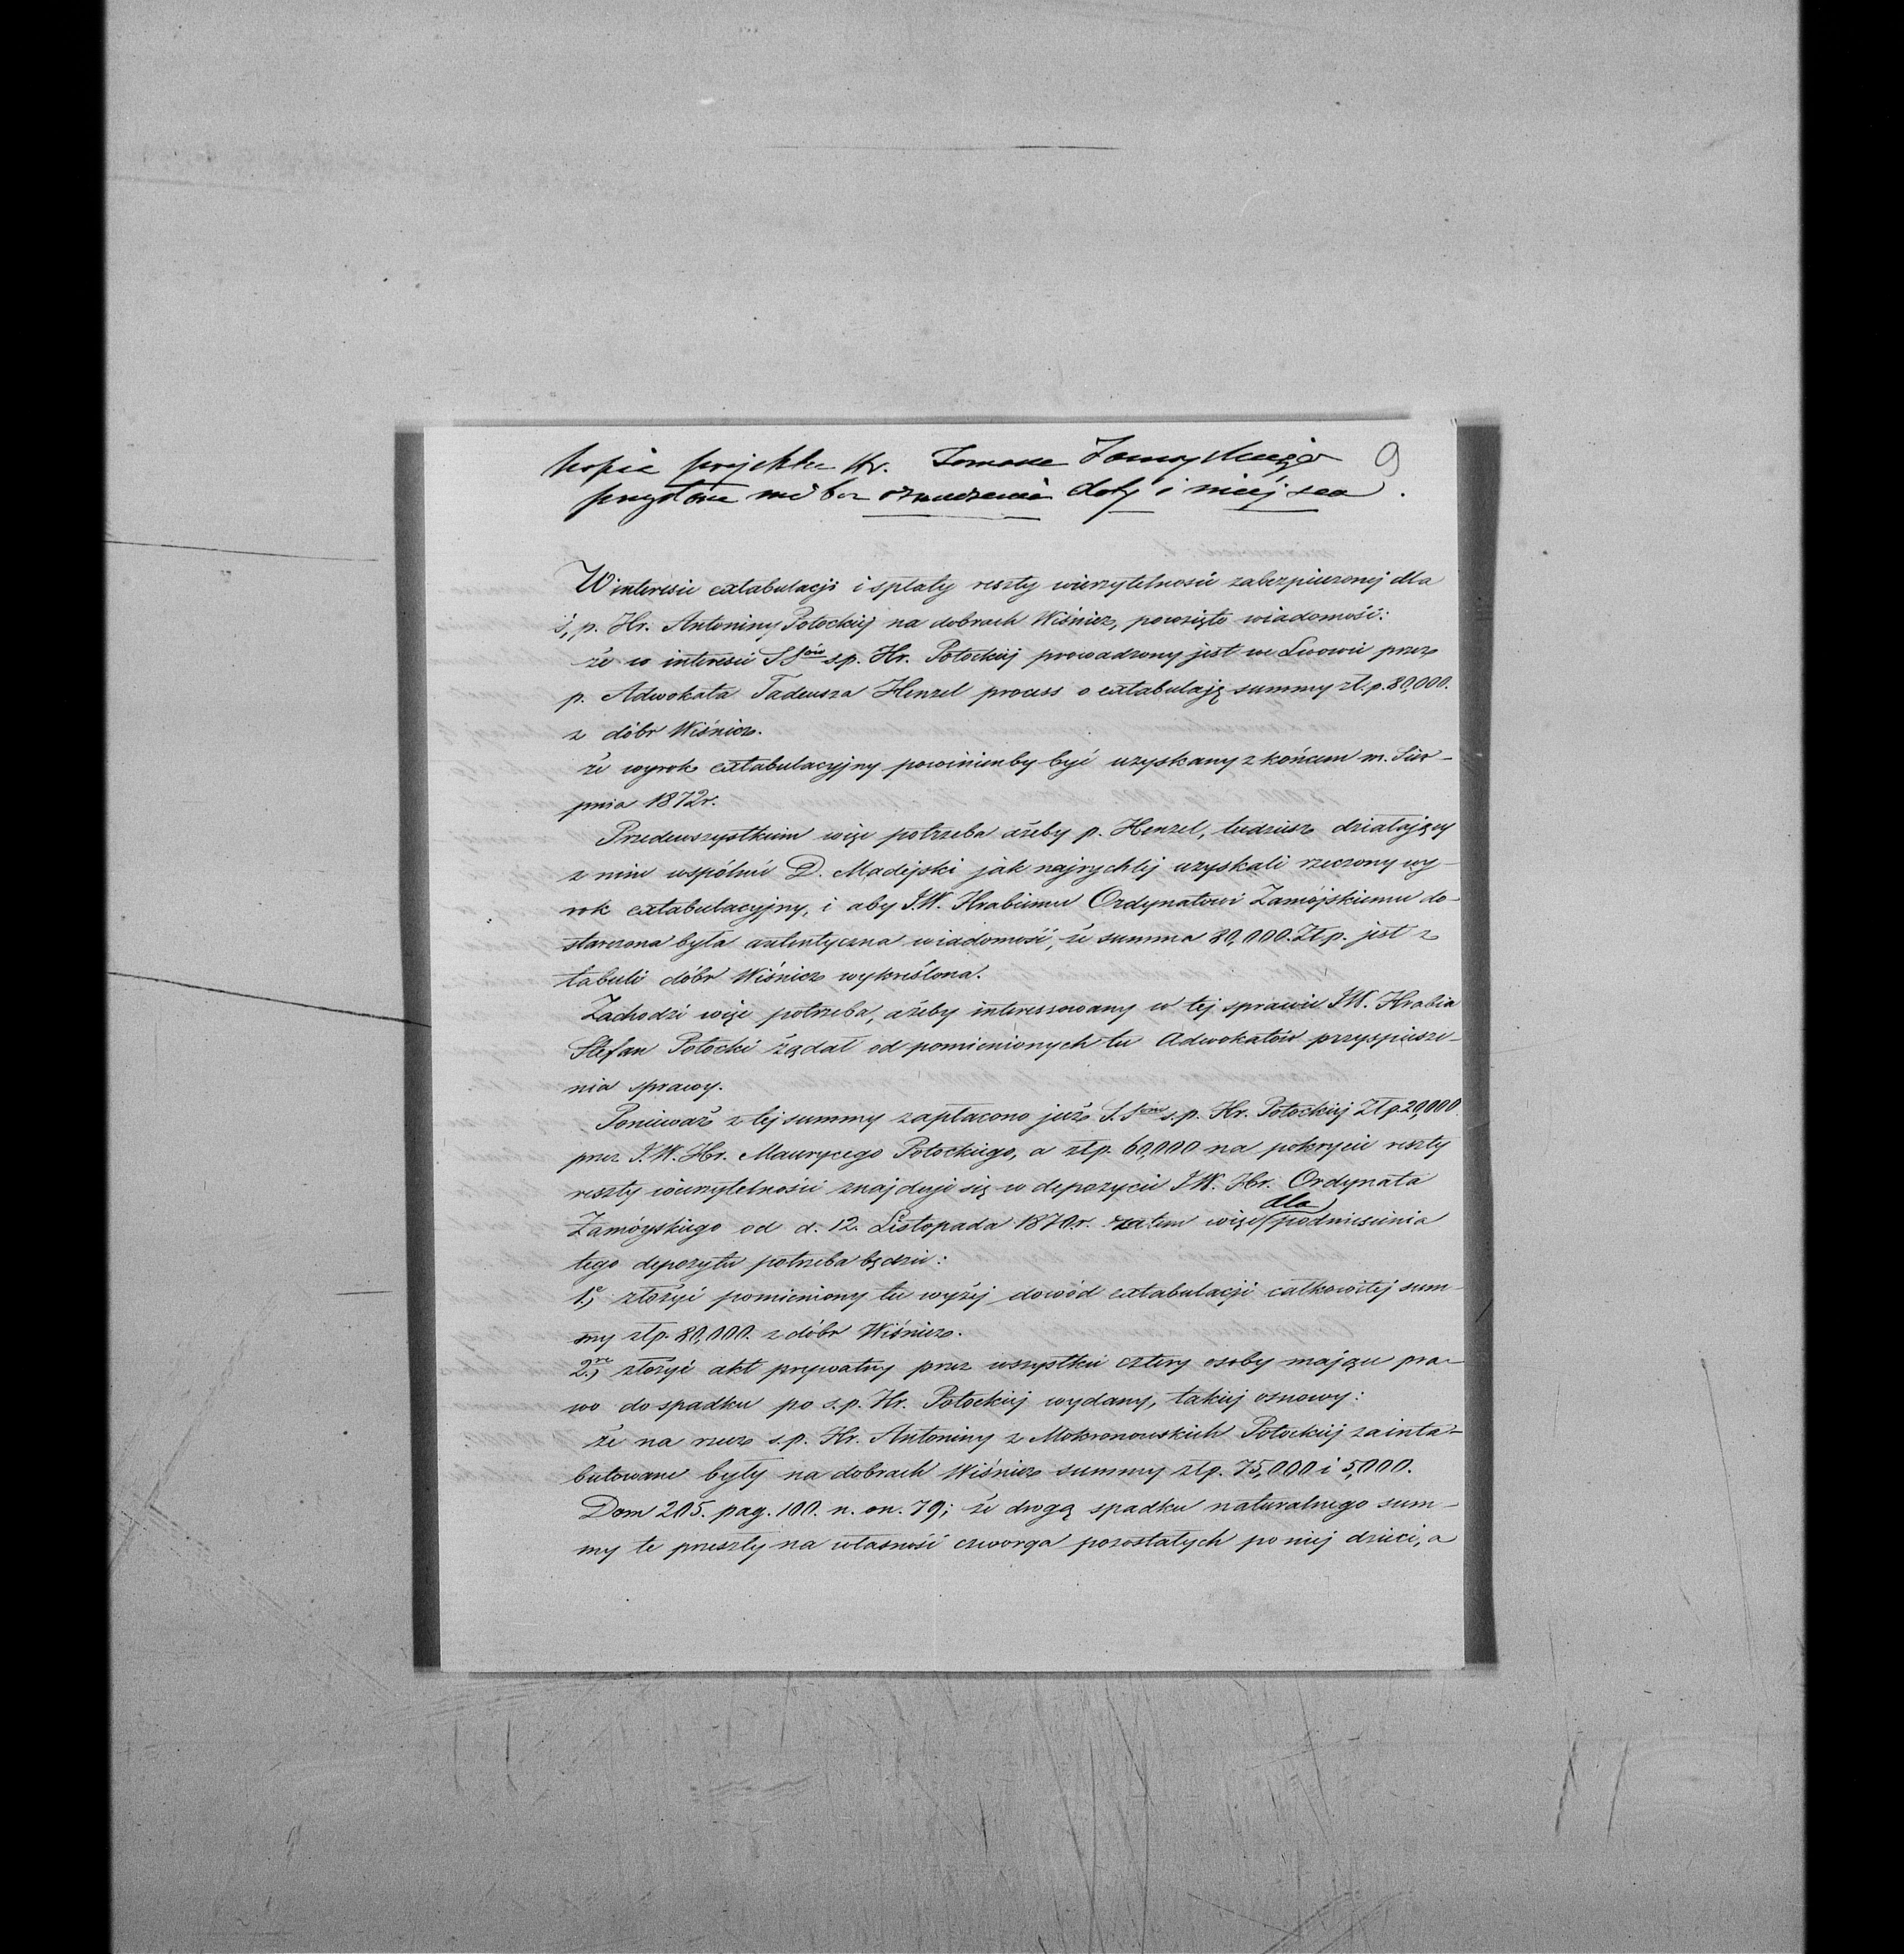 kopia projektu Hr. Tomasza Zamoyskiego 9
przysłana mi bez oznaczenia daty i miejsca.
W interesie extabulacji i spłaty reszty wierzytelności zabezpieczonej dla
ś. p. Hr. Antoniny Potockiej na dobrach Wiśnicz, powzięto wiadomość:
że w interesie SSów s.p. Hr. Potockiej prowadzony jest we Lwowie przez
p. Adwokata Tadeusza Henzel process o extabulają summy zł.p. 80,000.
z dóbr Wiśnicz.
że wyrok extabulacyjny powinienby być uzyskany z końcem m. Sier-
pnia 1872r.
Przedewszystkiem więc potrzeba ażeby p. Henzel, tudzież działający
z nim wspólnie D. Madejski jak najrychlej uzyskali rzeczony wy-
rok extabulacyjny, i aby J.W. Hrabiemu Ordynatowi Zamójskiemu do-
starczona była autentyczna wiadomość, że summa 80,000. Złp. jest z
tabuli dóbr Wiśnicz wykreślona.
Zachodzi więc potrzeba, ażeby interessowany w tej sprawie J.W. Hrabia
Stefan Potocki żądał od pomienionych tu Adwokatów przyspiesze-
nia sprawy.
Ponieważ z tej summy zapłacono już S.Som s.p. Hr. Potockiej Złp 20,000
przez J.W. Hr. Maurycego Potockiego, a złp. 60,000 na pokrycie reszty
reszty wierzytelności znajduje się w depozycie J.W. Hr. Ordynata
Zamóyskiego od d. 12. Listopada 1870.r. zatem więc dla podniesienia
tego depozytu potrzeba będzie:
1.e złożyć pomieniony tu wyżej dowód extabulacji całkowitej sum-
my złp. 80,000. z dóbr Wiśnicz.
2.re złożyć akt prywatny przez wszystkie cztery osoby mające pra-
wo do spadku po s.p. Hr. Potockiej wydany, takiej osnowy:
że na rzecz s.p. Hr. Antoniny z Mokronowskich Potockiej zainta-
bulowane były na dobrach Wiśnicz summy złp. 75,000 i 5,000.
Dom 205. pag. 100. n. on. 79; że drogą spadku naturalnego sum-
my te przeszły na własność czworga pozostałych po niej dzieci, a